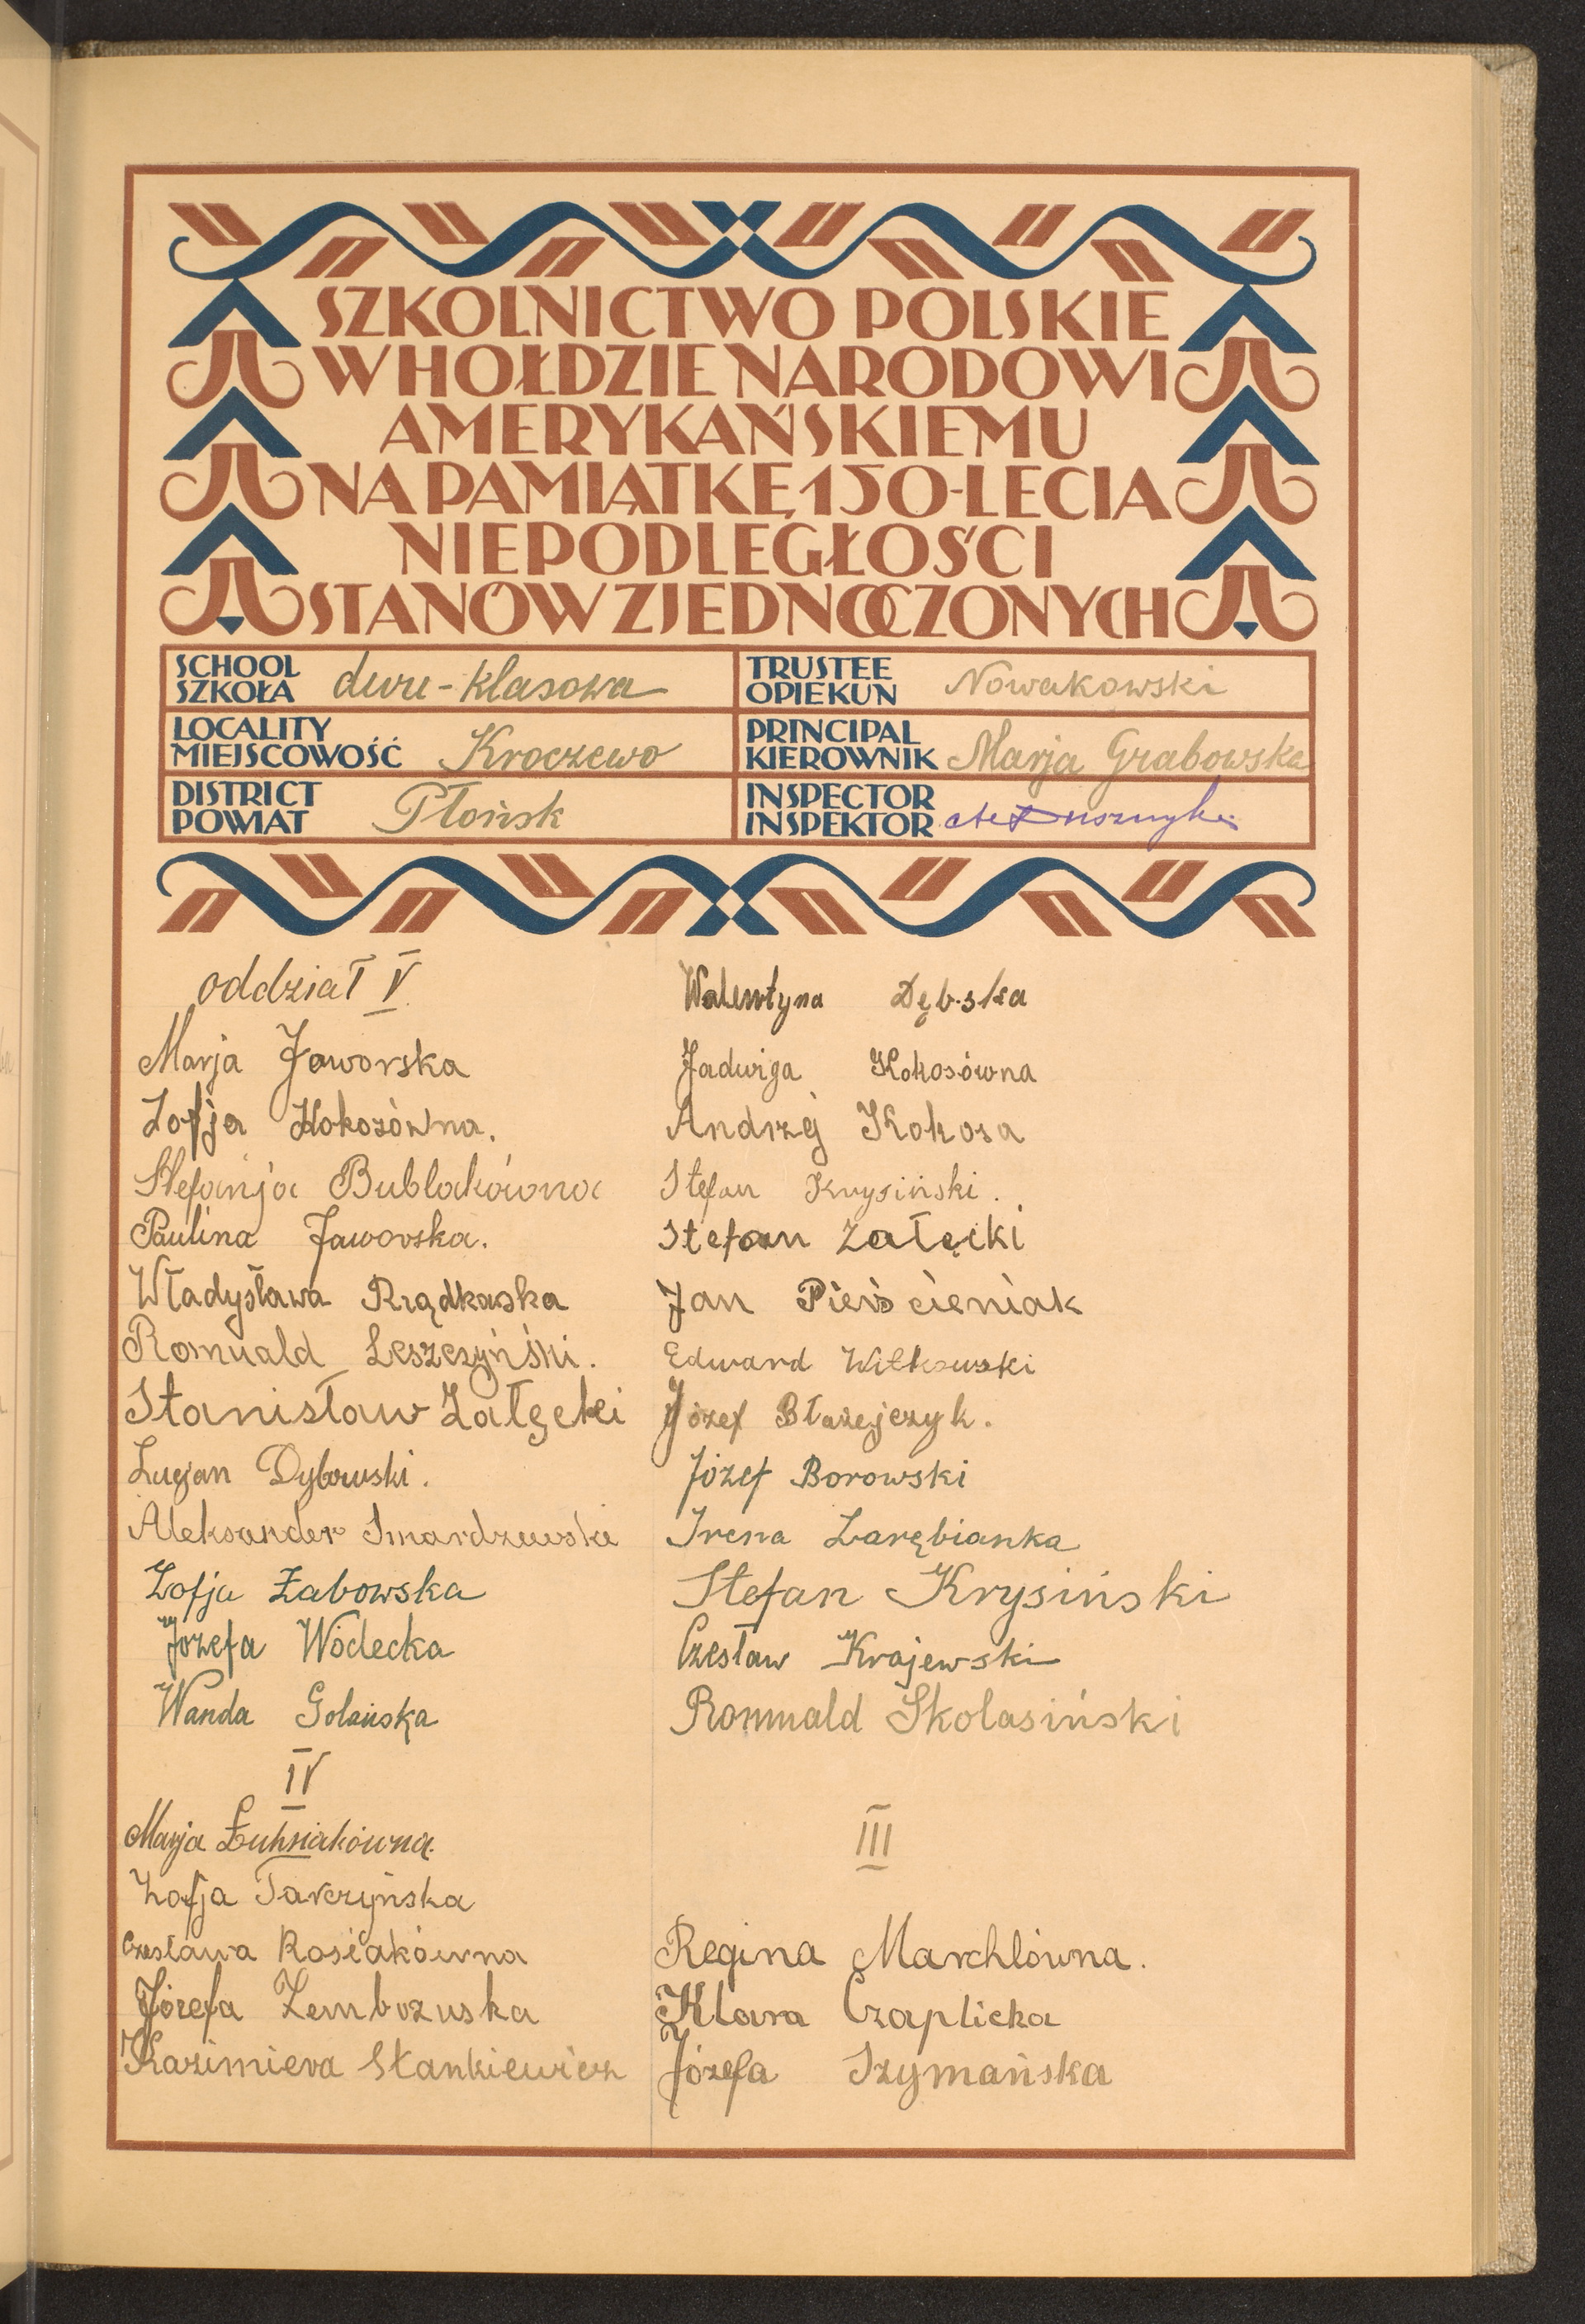 SZKOLNICTWO POLSKIE
W HOŁDZIE NARODOWI
AMERYKAŃSKIEMU
NA PAMIĄTKĘ 150-LECIA
NIEPODLEGŁOŚCI
STANÓW ZJEDNOCZONYCH
SCHOOL
SZKOŁA dwu-klasowa
TRUSTEE
OPIEKUN Nowakowski
LOCALITY
MIEJSCOWOŚĆ Kroczewo
PRINCIPAL
KIEROWNIK Marja Grabowska
DISTRICT
POWIAT Płońsk
INSPECTOR
INSPEKTOR
oddział V
Marja Jaworska
Zofja Kokosówna.
Stefanja Bublakówna
Paulina Jaworska.
Władysława Rządkaska
Romuald Leszczyński.
Stanisław Załęcki
Lucjan Dybowski.
Aleksander Smardzewski
Zofja Żabowska
Józefa Wodecka
Wanda Golańska
IV
Marja
Zofja Tarczyńska
Czesława Rosiakówna
Józefa Zembrzuska
Kazimiera Stankiewicz
Walentyna Dębska
Jadwiga Kokosówna
Andrzej Kokosa
Stefan Krysiński.
Stefan Załęcki
Jan Pierścieniak
Edward Witkowski
Józef Błażejczyk.
Józef Borowski
Irena Zarębianka
Stefan Krysiński
Czesław Krajewski
Romuald Skolasiński
III
Regina Marchlówna.
Klara Czaplicka
Józefa Szymańska